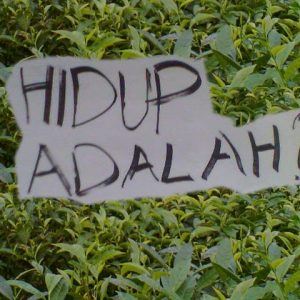 HIDUP
ADALAH?